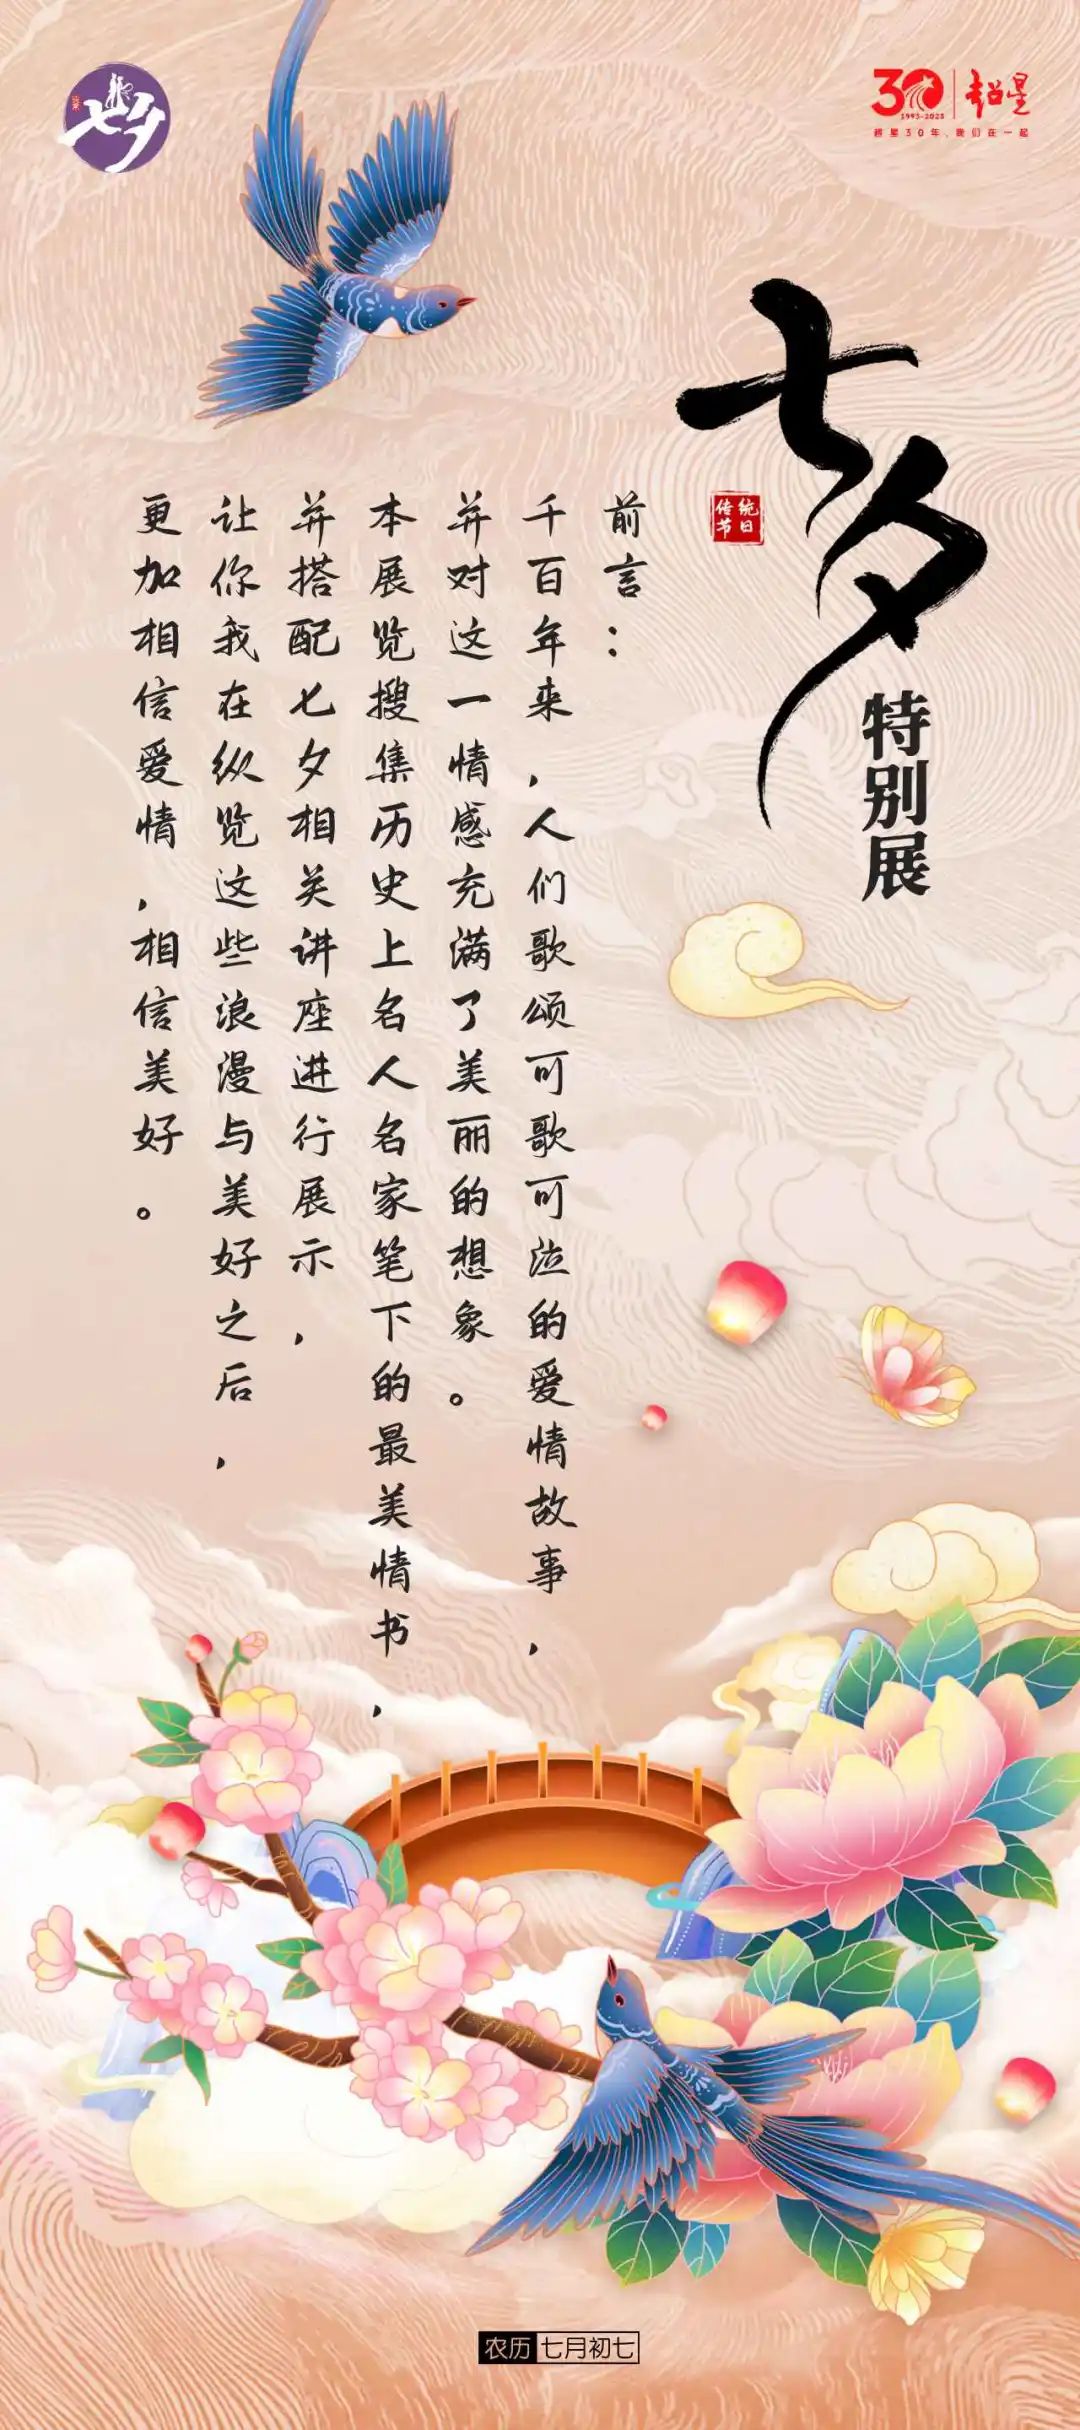 七夕
30
1993-2023
超星
超星30年,我们在一起
七夕
传统
节日
特别展
前言：
千百年来,人们歌颂可歌可泣的爱情故事,
并对这一情感充满了美丽的想象。
本展览搜集历史上名人名家笔下的最美情书,
并搭配七夕相关讲座进行展示,
让你我在纵览这些浪漫与美好之后,
更加相信爱情,相信美好。
农历 七月初七